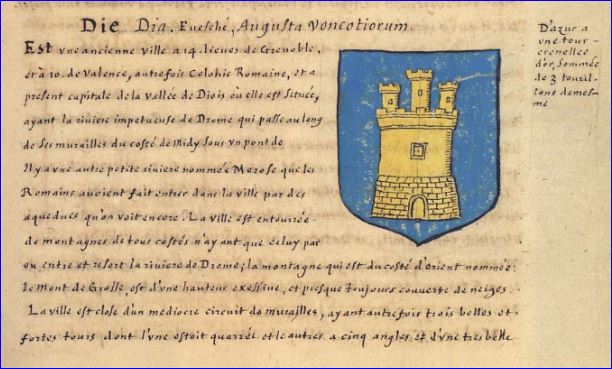 Die Dia. Euesché, Augusta Voncotiorum.
Est vne ancienne ville a 14. lieues de Grenoble,
et a 10. de Valence, autrefois Colonie Romaine, et a
present capitale de la vallée de Diois où elle est située,
ayant la riviere impetueuse de Drome qui passe au long
de ses murailles du costé de Midy sous vn pont de
Il y a vne autre petite riviere nommée Merose que les
Romains avoient fait entrer dans la ville par des
aqueducs qu'on voit encore. La ville est entourrée
de montagnes de tous costés n'ayant que celuy par
ou entre et resort la riviere de Drome; la montagne qui est du costé d'orient nommée
le mont de Glosse, est d'vne hauteur exessive, et presque toujours couverte de neiges.
La ville est close d'un mediocre circuit de murailles, ayant autrefois trois belles et
fortes tours dont l'vne estoit quarrée et le autres a cinq angles et d'vne tres belle
D'azur a
vne tour
crenellee
d'or, sommée
de 3 touril-
lons de mes-
me